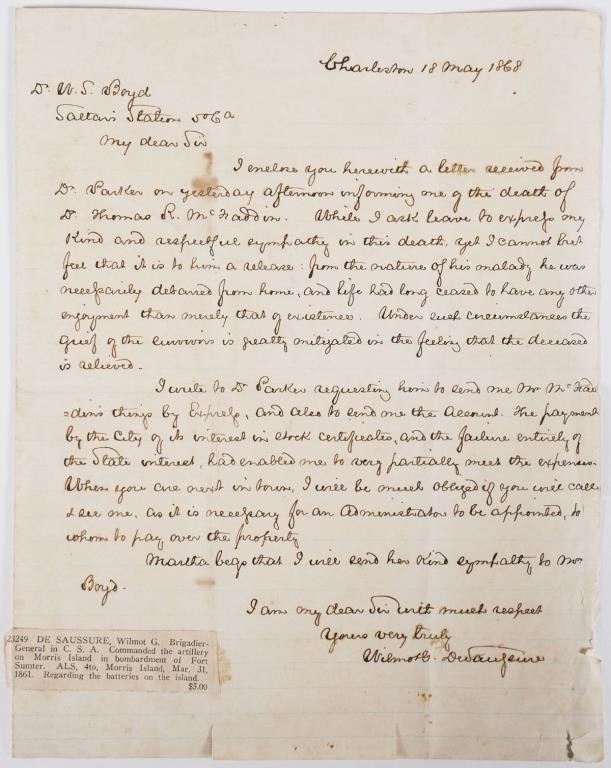 Charleston 18 May 1868
Dr. W. S. Boyd
Station So Ca
My dear Sir
I enclose you herewith a letter received from
Dr. Parker on yesterday afternoon informing me of the death of
Dr. Thomas R. McFaddin. While I ask leave to express my
kind and respectful sympathy in this death, yet I cannot but
feel that it is to him a release: from the nature of his malady he was
necessarily debarred from home, and life had long ceased to have any other
enjoyment than merely that of existence. Under such circumstances the
grief of the survivors is greatly mitigated in the feeling that the deceased
is relieved.
I write to Dr. Parker requesting him to send me Mr McFad
=din's things by Express, and also to send me the account. The payment
by the City of its interest in stock certificates, and the failure entirely of
the State interest, had enabled me to very partially meet the expenses.
When you are next in town, I will be much obliged if you will call
& see me, as it is necessary for an administrator to be appointed, to
whom to pay over the property
Martha begs that I will send her kind sympathy to Mrs
Boyd.
I am my dear Sir with much respect
Yours very truly
Wilmot G. DeSaussure
23249 DE SAUSSURE, Wilmot G. Brigadier-
General in C. S. A. Commanded the artillery
on Morris Island in bombardment of Fort
Sumter. ALS, 4to, Morris Island, Mar. 31,
1861. Regarding the batteries on the island.
$5.00